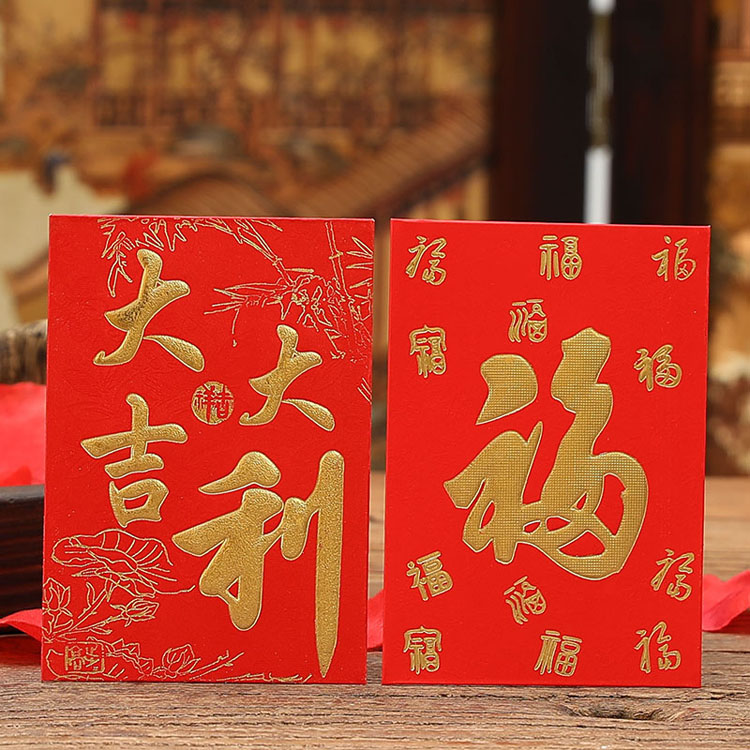 大吉
大利
吉祥
福 福 福
福
福 福
福
福 福
福
福 福 福